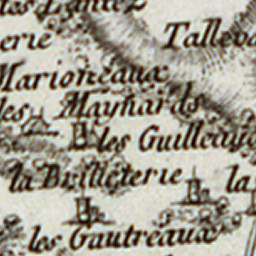 erie Talleva
Marioneaux
les Maynards
les Guilleau
la Brilleterie la
les Gautreaux